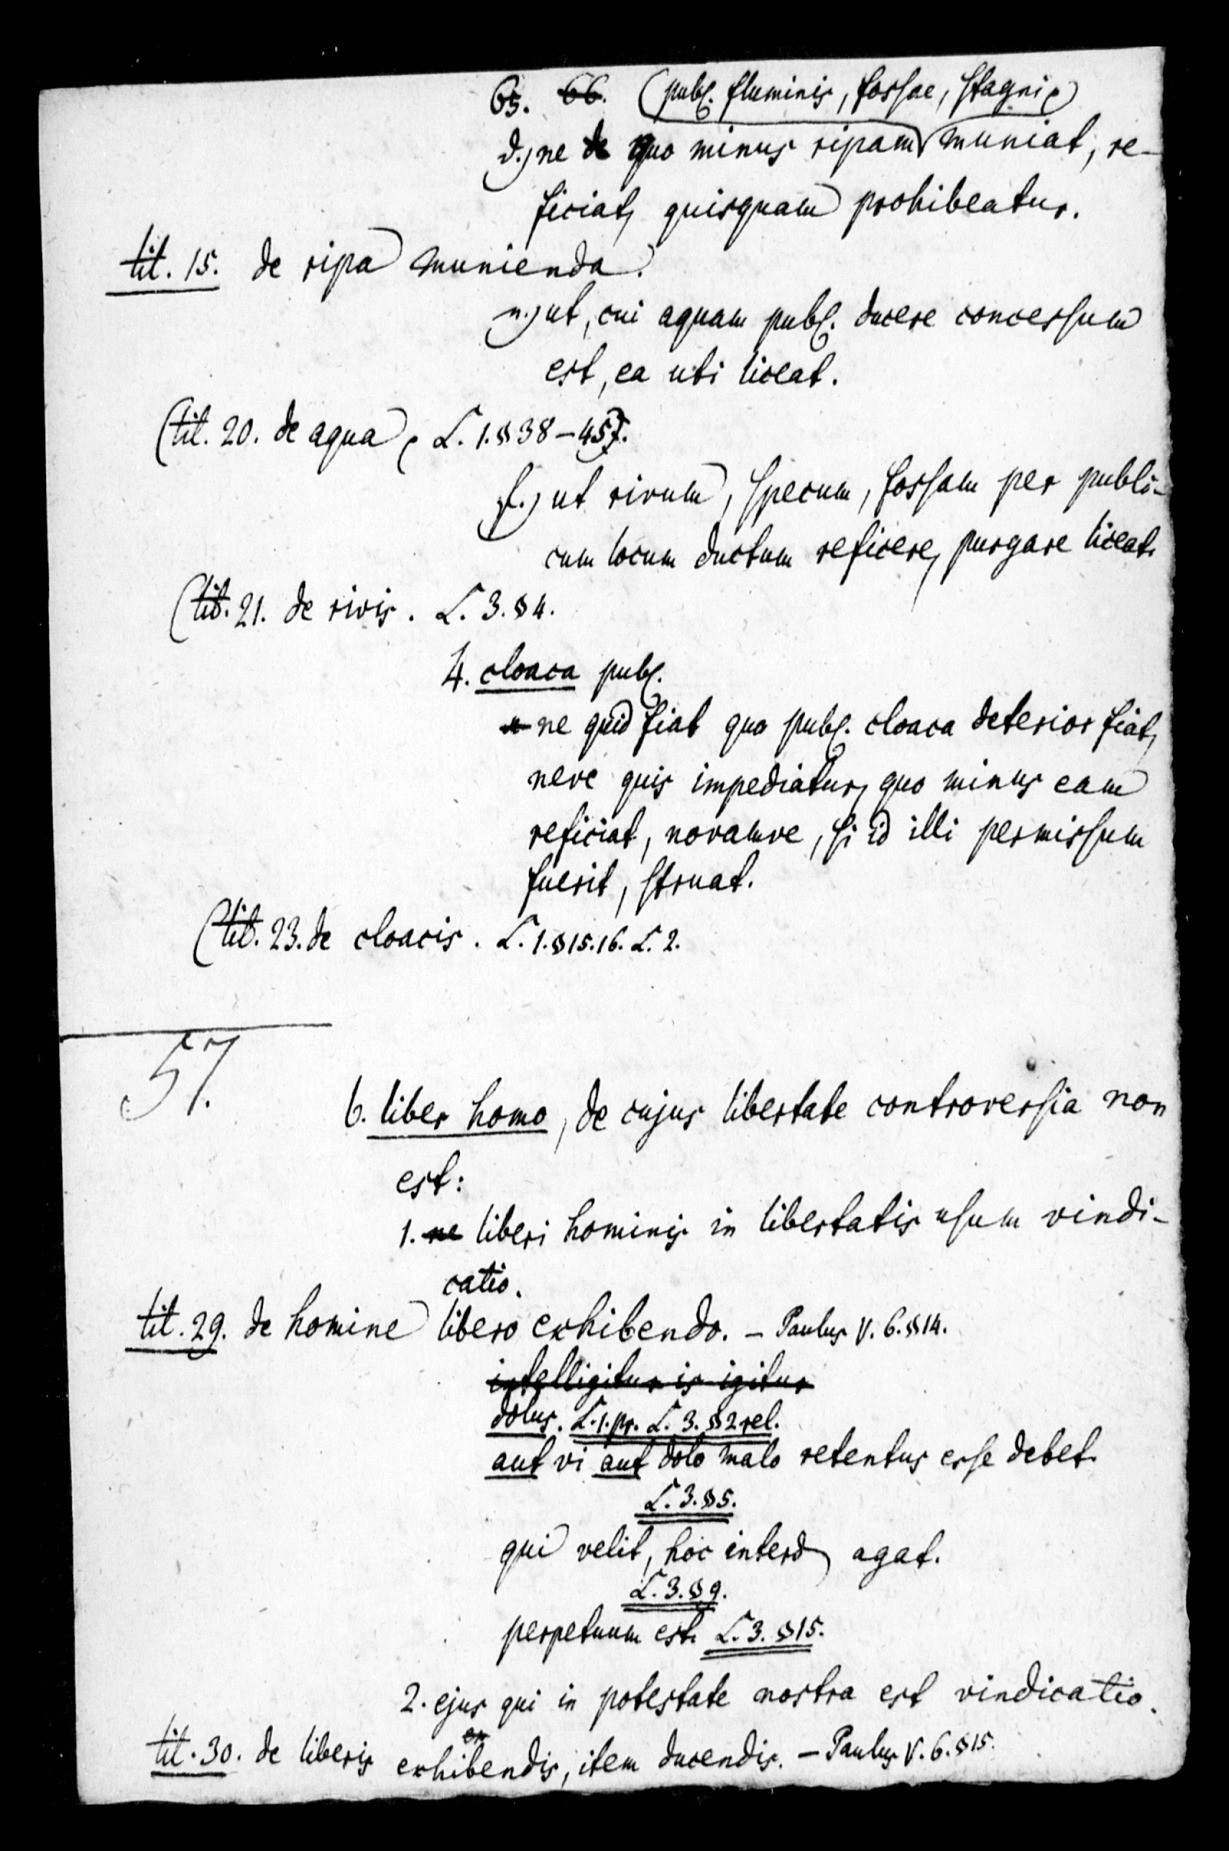 65. 66. (publ. fluminis, fossae, stagni)
d.) ne de quo minus ripam muniat, re-
ficiat, quisquam prohibeatur.
tit. 15. de ripa munienda.
ut, cui aquam publ. ducere concessum
est, ea uti liceat.
(tit. 20. de aqua, L. 1. § 38–45).
f.) ut rivum, specum, fossam per publi-
cum locum ductum reficere, purgare liceat.
(tit. 21. de rivis. L. 3. § 4.
4. cloaca publ.
ne quid fiat quo publ. cloaca deterior fiat,
neve quis impediatur, quo minus eam
reficiat, novamve, si id illi permissum
fuerit, struat.
(tit. 23. de cloacis. L. 1. § 15. 16. L. 2.
57.
6. liber homo, de cujus libertate controversia non
est:
1. ne liberi hominis in libertatis usum vindi-
catio.
tit. 29. de homine libero exhibendo. – Paulus V. 6. § 14.
intelligitur is igitur
dolus. L. 1. pr. L. 3. § 2 rel.
aut vi aut dolo malo retentus esse debet.
L. 3. § 5.
qui velit, hoc interd agat.
L. 3. § 9.
perpetuum est. L. 3. § 15.
2. ejus qui in potestate nostra est vindicatio.
tit. 30. de liberis exhibendis, item ducendis. – Paulus V. 6. § 15.